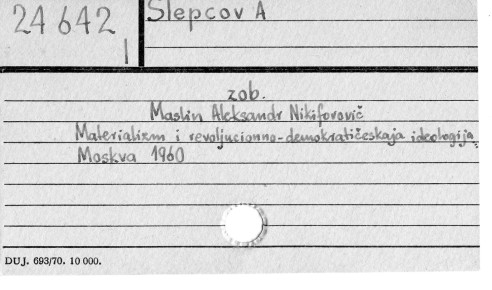 24 642
I
Slepcov A
zob.
Maslin Aleksandr Nikiforovič
Materializm i revoljucionno-demokratičeskaja ideologija.
Moskva 1960
DUJ. 693/70. 10 000.